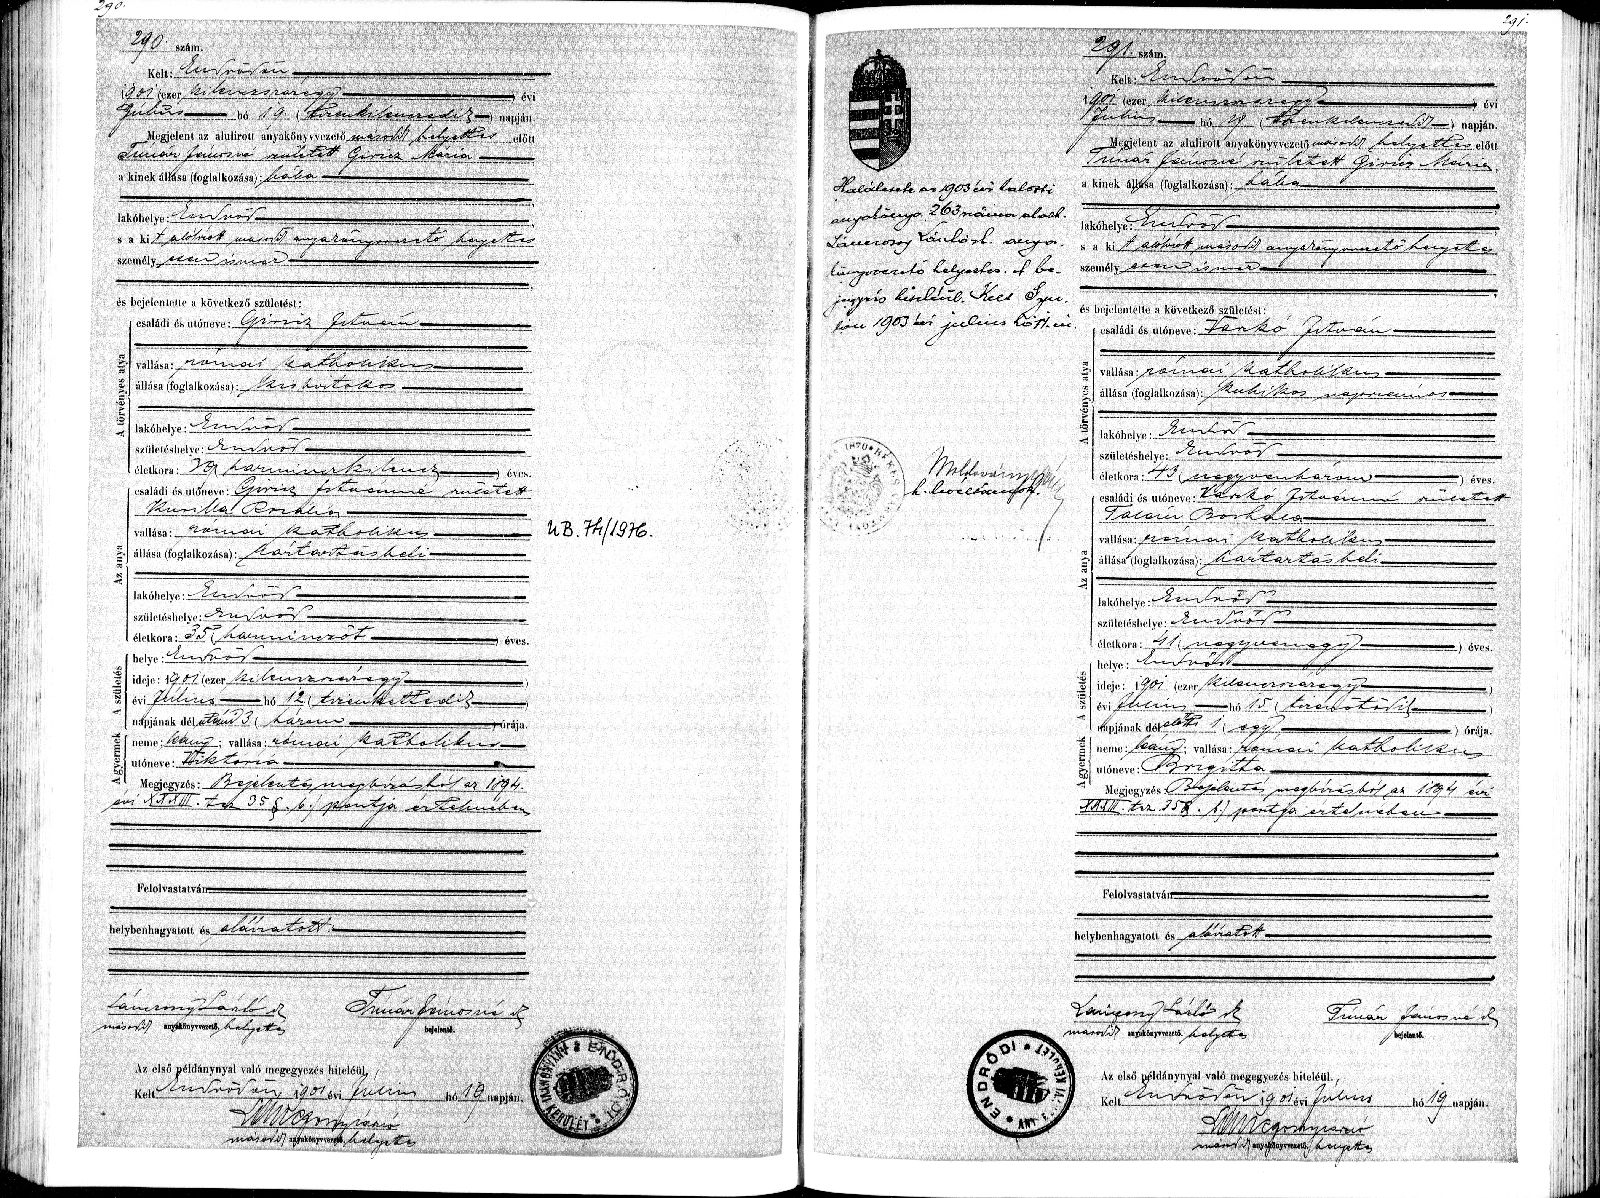 290.
290. szám.
Kelt: Endrődön
1901 (ezer kilenczszázegy) évi
Július hó 19 (tizenkilenczedik) napján
Megjelent az alulirott anyakönyvvezető másodh. helyettes előtt
Timár Jánosné született Giricz Mária
a kinek állása (foglalkozása): bába
lakóhelye: Endrőd
s a kit alólirott másodh. anyakönyvvezető helyettes
személyesen ismer
és bejelentette a következő születést:
A törvényes atya
családi és utóneve: Giricz István
vallása: római katholikus
állása (foglalkozása): kisbirtokos
lakóhelye: Endrőd
születéshelye: Endrőd
életkora: 39 (harminczkilencz) éves.
Az anya
családi és utóneve: Giricz Istvánné született
Kurilla Rozália
vallása: római katholikus
állása (foglalkozása): háztartásbeli
lakóhelye: Endrőd
születéshelye: Endrőd
életkora: 35 (harminczöt) éves.
A születés
helye: Endrőd
ideje: 1901 (ezer kilenczszázegy)
évi Július hó 12 (tizenkettedik)
napjának dél után 3 (három) órája.
A gyermek
neme: leány; vallása: római katholikus
utóneve: Viktoria
Megjegyzés: Bejelentés megbízásból az 1894.
évi XXXIII. tcz 35 §. b.) pontja értelmében
Felolvastatván
helybenhagyatott és aláíratott.
Lánczony László sk
Timár Jánosné sk
másodh. anyakönyvvezető, helyettes
bejelentő.
Az első példánynyal való megegyezés hiteléül,
Kelt Endrődön 1901 évi Július hó 19 napján.
másodh. anyakönyvvezető, helyettes
ENDRŐDI
ANYAKÖNYVI KERÜLET
UB. 74/1976.
291.
291. szám.
Kelt: Endrődön
1901 (ezer kilenczszázegy) évi
Július hó 19 (tizenkilenczedik) napján.
Megjelent az alulirott anyakönyvvezető másodh. helyettes előtt
Timár Jánosné született Giricz Mária
a kinek állása (foglalkozása): bába
lakóhelye: Endrőd
s a kit alólirott másodh. anyakönyvvezető helyettes
személyesen ismer
és bejelentette a következő születést:
A törvényes atya
családi és utóneve: Varkó István
vallása: római katholikus
állása (foglalkozása): kubikos napszámos
lakóhelye: Endrőd
születéshelye: Endrőd
életkora: 43 (negyvenhárom) éves.
Az anya
családi és utóneve: Varkó Istvánné született
Borbála
vallása: római katholikus
állása (foglalkozása): háztartásbeli
lakóhelye: Endrőd
születéshelye: Endrőd
életkora: 41 (negyvenegy) éves.
A születés
helye: Endrőd
ideje: 1901 (ezer kilenczszázegy)
évi Július hó 15 (tizenötödik)
napjának dél előtti 1 (egy) órája.
A gyermek
neme: leány; vallása: római katholikus
utóneve: Brigitta
Megjegyzés: Bejelentés megbízásból az 1894 évi
XXXIII. tcz. 35 §. b) pontja értelmében
Felolvastatván
helybenhagyatott és aláíratott
Lánczony László sk
Timár Jánosné sk
másodh. anyakönyvvezető, helyettes
bejelentő.
Az első példánynyal való megegyezés hiteléül,
Kelt Endrődön 1901 évi Július hó 19 napján.
másodh. anyakönyvvezető, helyettes
ENDRŐDI
Halálesete az 1903 évi halotti
anyakönyv 263 száma alatt.
Lánczony László sk. anya-
könyvvezető helyettes. A be-
jegyzés hiteléül. Kelt Gyu-
lán 1903 évi július hó